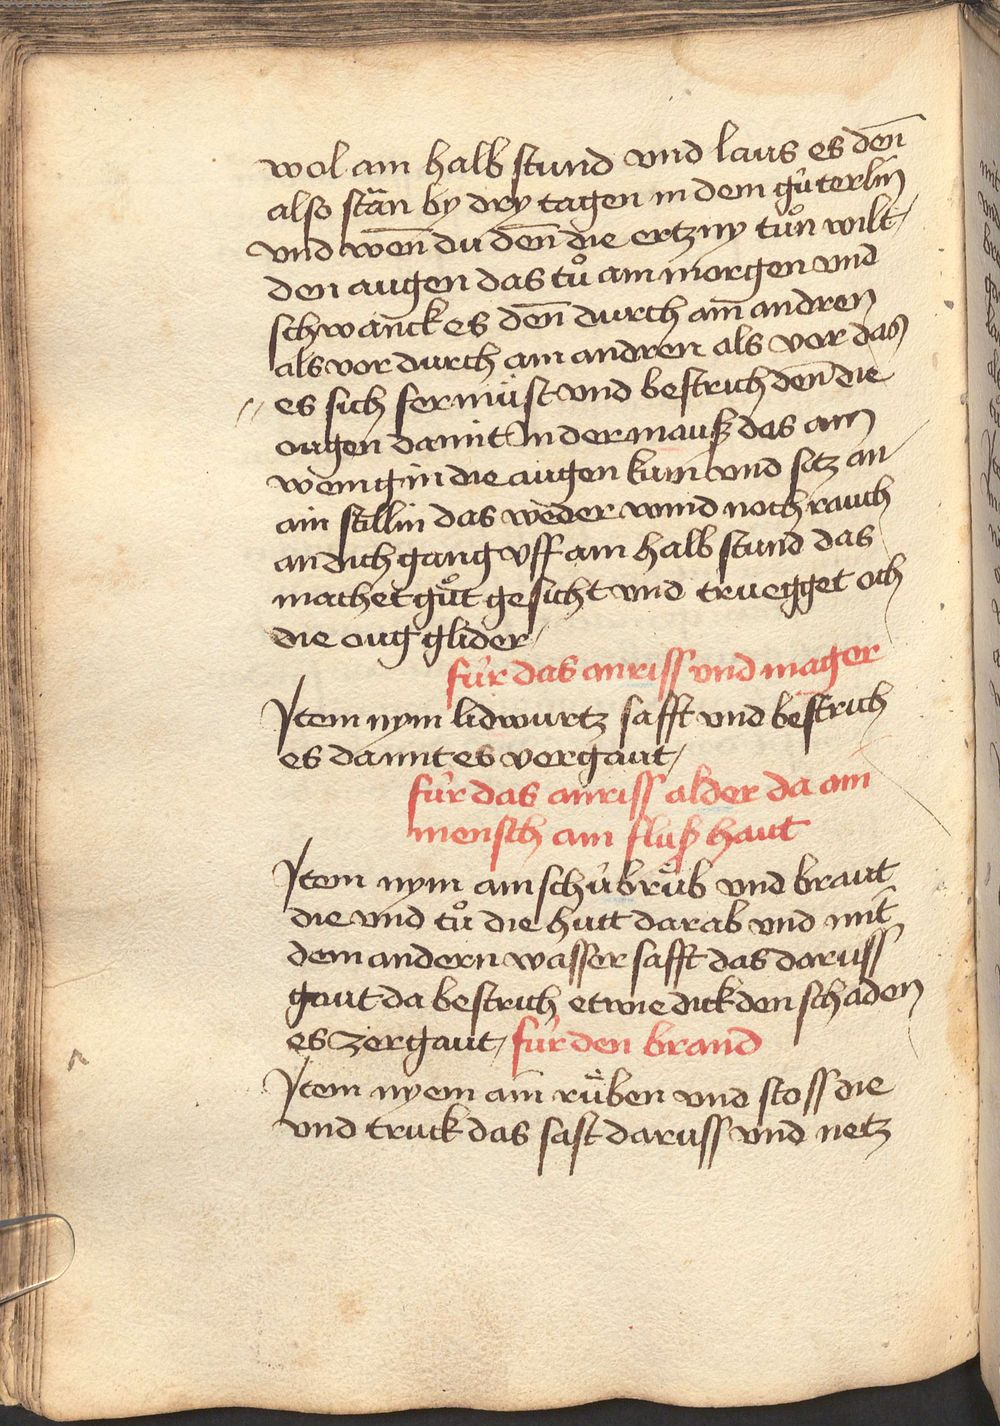 wol ain halb stund vnd laus es den̄
also stän by dry tagen in dem gůterlin
vnd wen̄ du den̄ die ertzny tůn wilt
den augen das tů am morgen vnd
schwanck es den̄ durch ain̄ andren
als vor durch ain andren als vor das
es sich fermüst vnd bestrich den̄ die
ougen damit In der mauß das ain
wenig in die augen kum vnd sitz an
ain stillin das weder wind noch rauch
an dich gang vff ain halb stund das
machet gůt gesicht vnd truegget och
die oug glider
für das anriss vnd mager
Item nym lidwurtz safft vnd bestrich
es damit es vergaut
für das anriss alder da ain
mensch ain fluß haut
Item nym ain schübrůb vnd braut
die vnd tů die hutt darab vnd mit
dem andern wasser safft das daruss
gaut da bestrich etwie dick den schaden
es zergaut für den brand
Item nyem ain̄ rüben vnd stoss die
vnd truck das safft daruss vnd netz